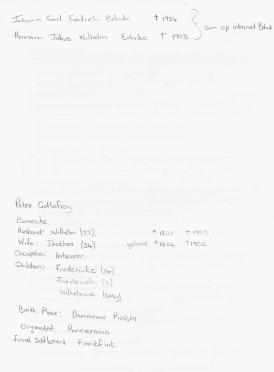 Johann Carl Friedrich Behnke † 1934
Hermann Julius Wilhelm Behnke † 1903
Son op internet
Peter Godeffroy
Benecke
Husband: Wilhelm (37). * 1822 † 1903
Wife: Dorothea (34) * 1824 † 1902
Occupation: Labourer
Children: Friedericke (14).
Friederich (7).
Wilhelmine (baby).
Birth Place: Dammenau Prussia
Originated: Pommerania
Final Settlement Frankfurt.